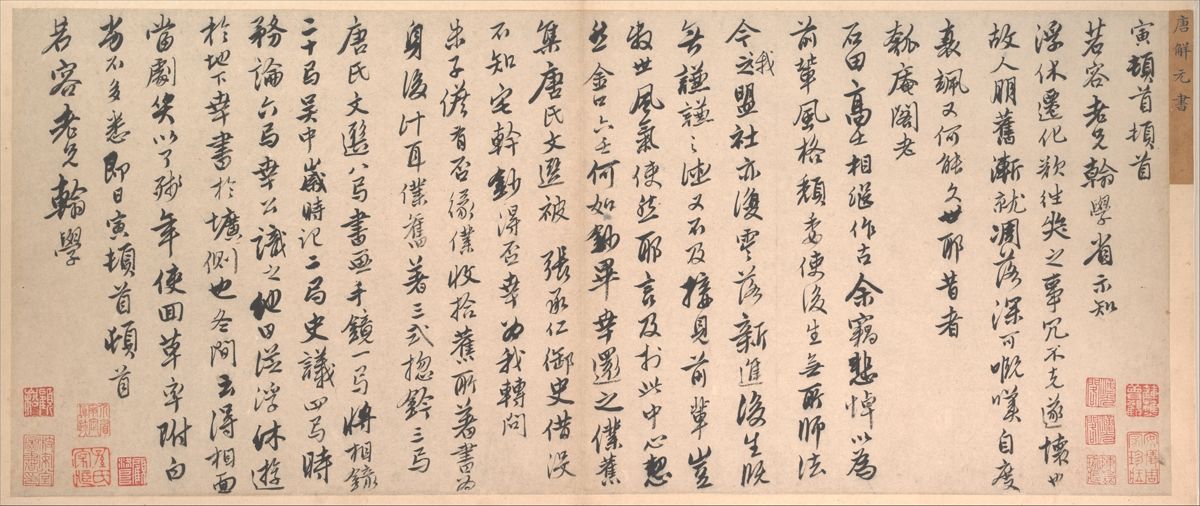 唐解元書
寅頓首頓首
若容老兄翰學省示知
浮休遷化欲往哭之事冗不克遂壞也
故人朋舊漸就凋落深可嘅嘆自度
衰颯又何能久世耶昔者
瓠庵閣老
石田高士相繼作古余竊悲悼以為
前輩風格頹委使後生無所師法
今之我盟社亦復零落新進後生既
無謙謙之德又不及接見前輩豈
衰世風氣使然耶言及於此中心愁
然金口六壬何如鈔畢幸還之僕舊
集唐氏文選被張承仁御史借沒
不知宅幹鈔得否幸為我轉問
朱子儋有否緣僕收拾舊所著書為
身後計耳僕舊著三式揔鈐三卷
唐氏文選八卷書畫手鏡一卷將相錄
二十卷吳中歲時記二卷史議四卷時
務論六卷幸公識之他日從浮休遊
於地下幸書於壙側也冬間去得相面
當劇矣以了殘年使回草率附白
不多悉即日寅頓首頓首
若容老兄翰學